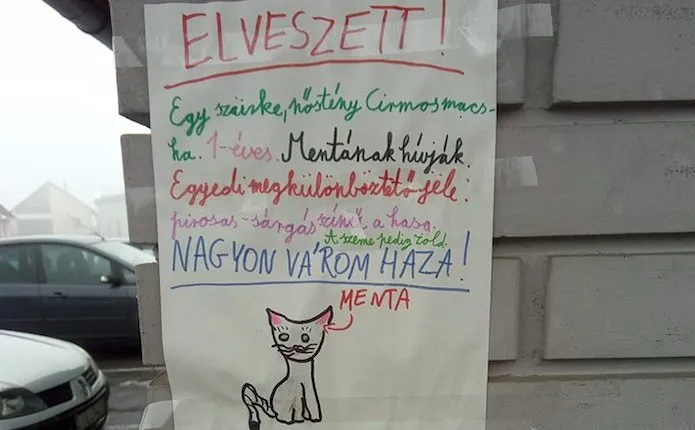 ELVESZETT!
Egy szürke, nőstény Cirmos macs-
ka. 1-éves. Mentának hívják.
Egyedi megkülönböztető jele:
pirosas-sárgás színű a hasa.
A szeme pedig zöld.
NAGYON VÁROM HAZA!
MENTA